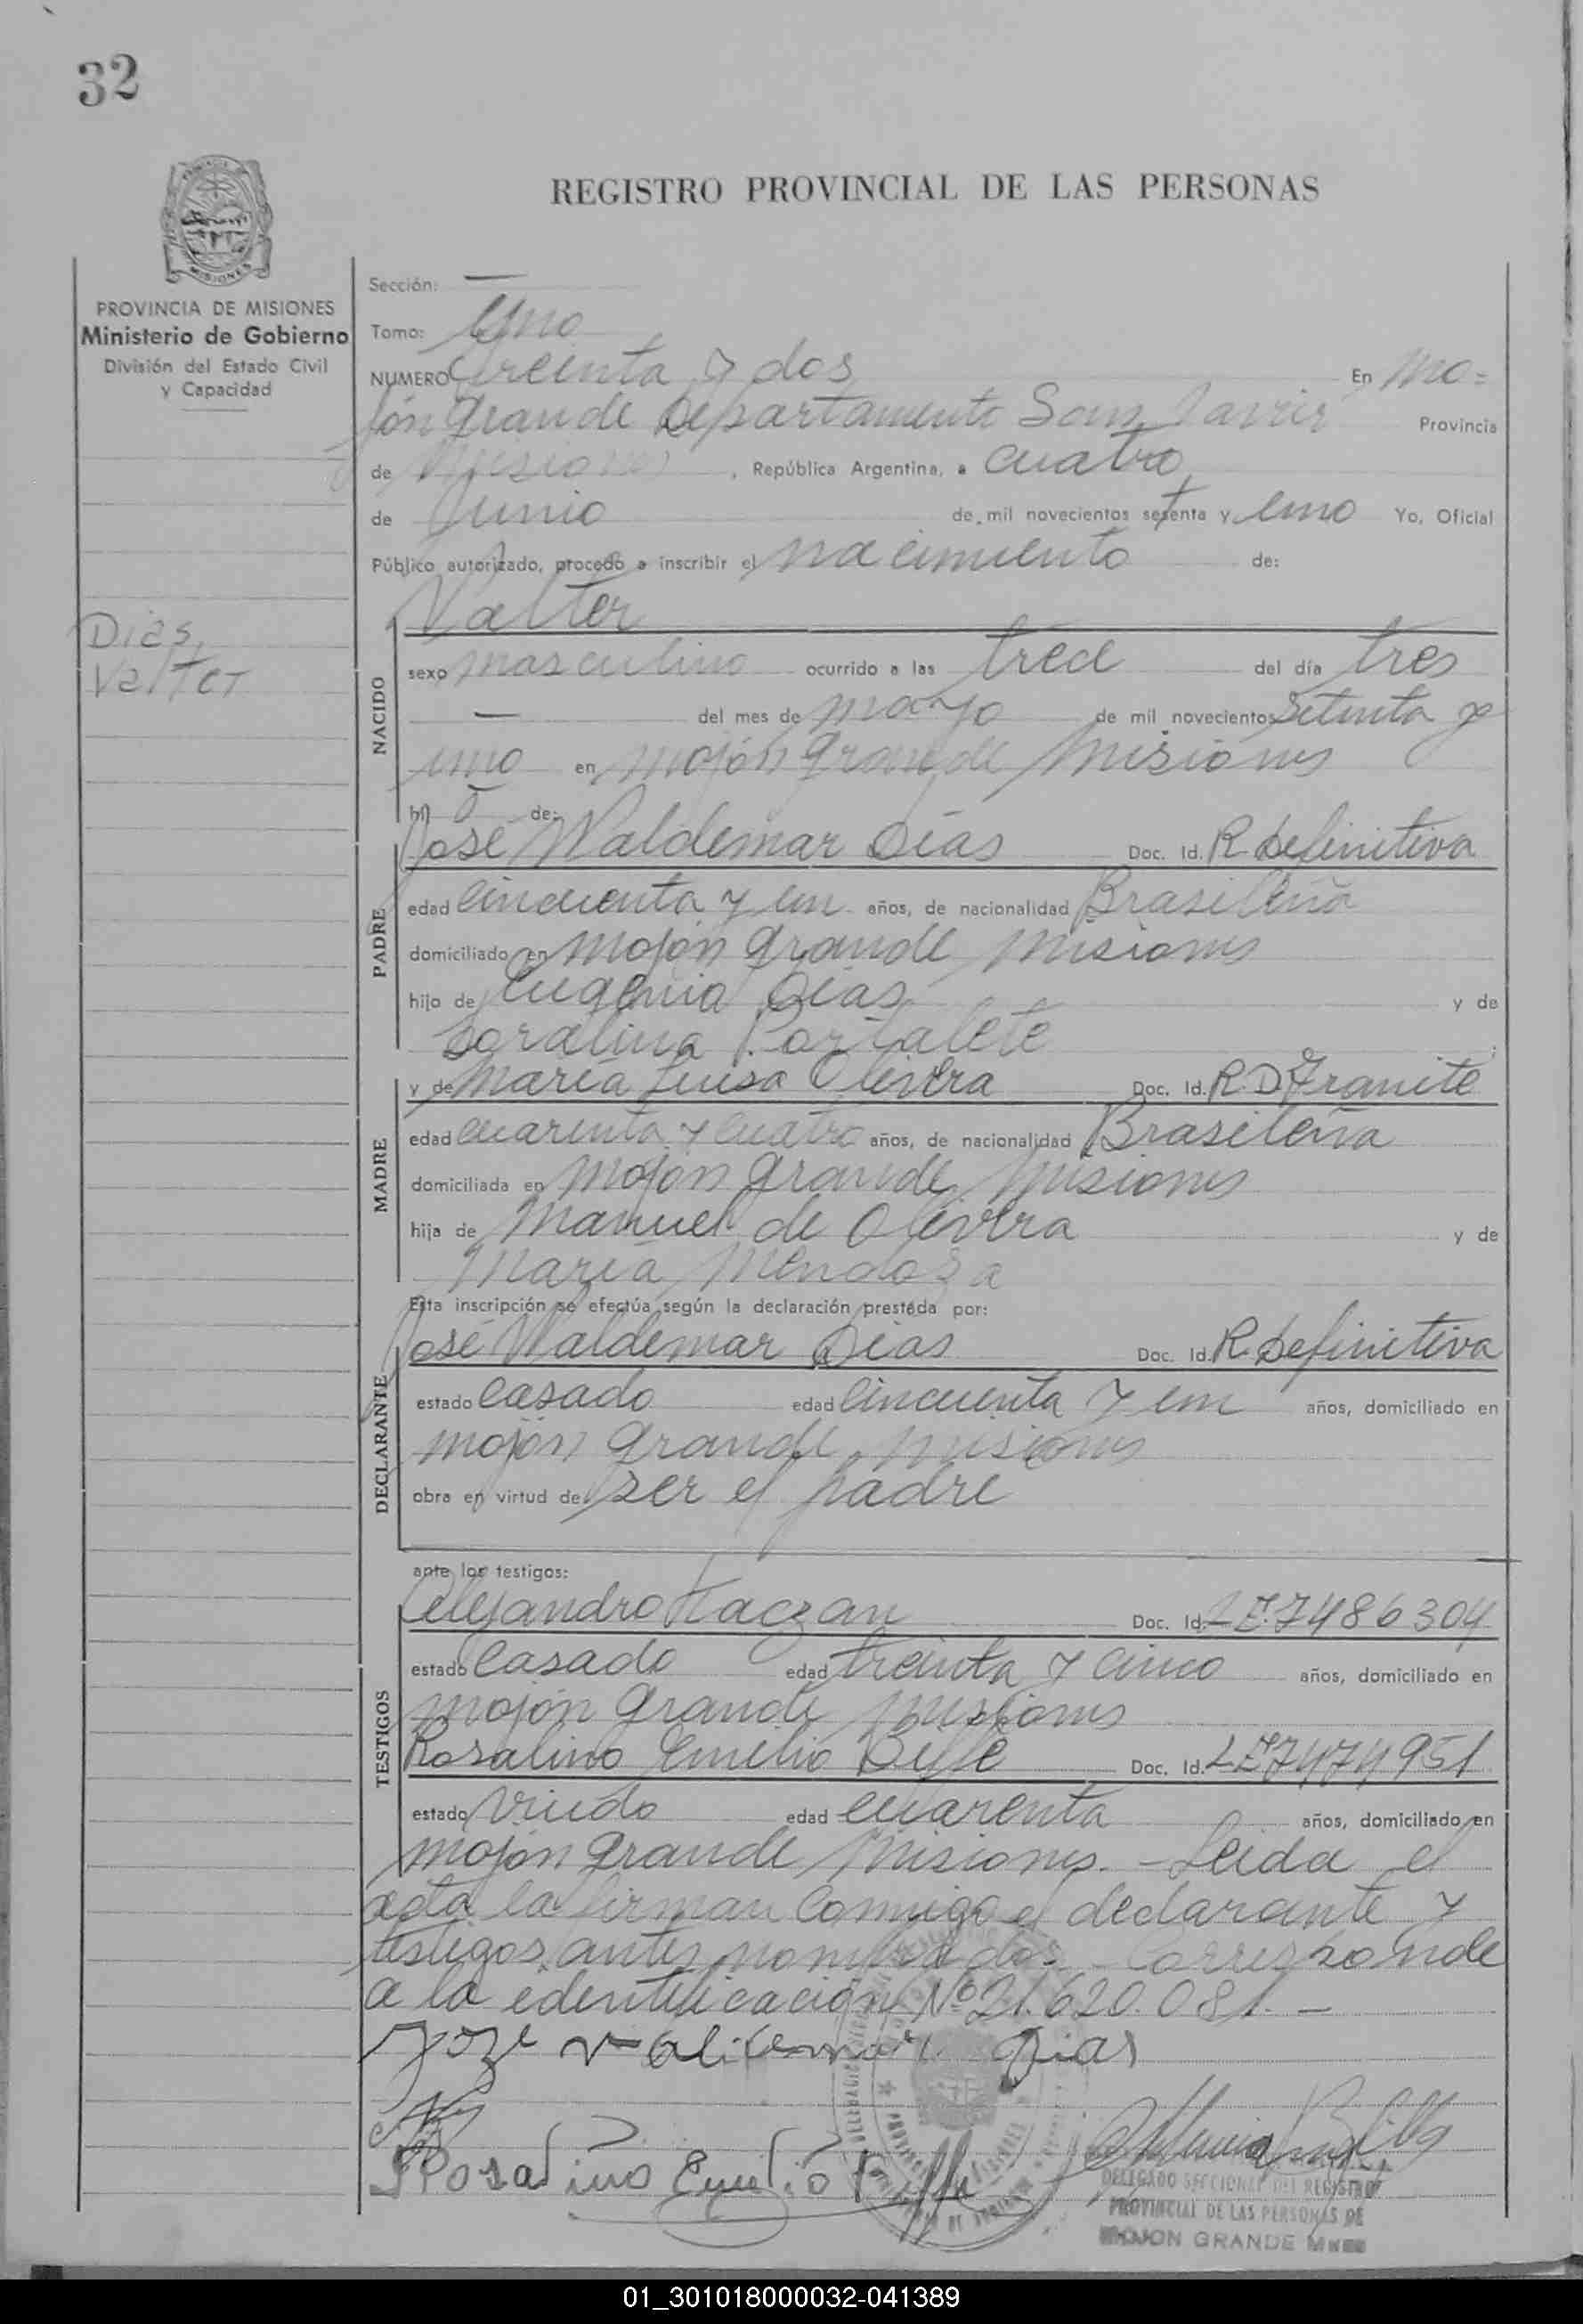 32
REGISTRO PROVINCIAL DE LAS PERSONAS
MISIONES
PROVINCIA DE MISIONES
Ministerio de Gobierno
División del Estado Civil
y Capacidad
Dias,
Valter
Sección: —
Tomo: Uno
NUMERO Treinta y dos En Mo=
jón Grande Departamento San Javier Provincia
de Misiones, República Argentina, a cuatro
de Junio de mil novecientos setenta y uno Yo, Oficial
Público autorizado, procedo a inscribir el nacimiento de:
NACIDO
Valter
sexo masculino ocurrido a las trece del día tres
— del mes de mayo de mil novecientos setenta y
uno en mojón Grande Misiones
hij o de:
PADRE
José Waldemar Dias Doc. Id. R. Definitiva
edad cincuenta y un años, de nacionalidad Brasileña
domiciliado en mojón Grande Misiones
hijo de Eugenio Dias y de
Portalete
MADRE
y de María Luisa Olivera Doc. Id. R D Tramite
edad cuarenta y cuatro años, de nacionalidad Brasileña
domiciliada en mojón Grande Misiones
hija de Manuel de Olivera y de
María Mendosa
DECLARANTE
Esta inscripción se efectúa según la declaración prestada por:
José Waldemar Dias Doc. Id. R. Definitiva
estado casado edad cincuenta y un años, domiciliado en
mojón Grande, misiones
obra en virtud de ser el padre
TESTIGOS
ante los testigos:
Alejandro Kaczan Doc. Id. L E. 7486304
estado casado edad treinta y cinco años, domiciliado en
mojón Grande Misiones
Rosalino Emilio Doc. Id. L E 7474951
estado viudo edad cuarenta años, domiciliado en
mojón Grande Misiones. - Leida el
acta la firman conmigo el declarante y
testigos antes nombrados - Corresponde
a la identificación Nº 21.620.081. -
Joze Dias
Rosalino Emilio
DELEGADO SECCIONAL DEL REGISTRO
PROVINCIAL DE LAS PERSONAS DE
MOJON GRANDE
01_301018000032-041389